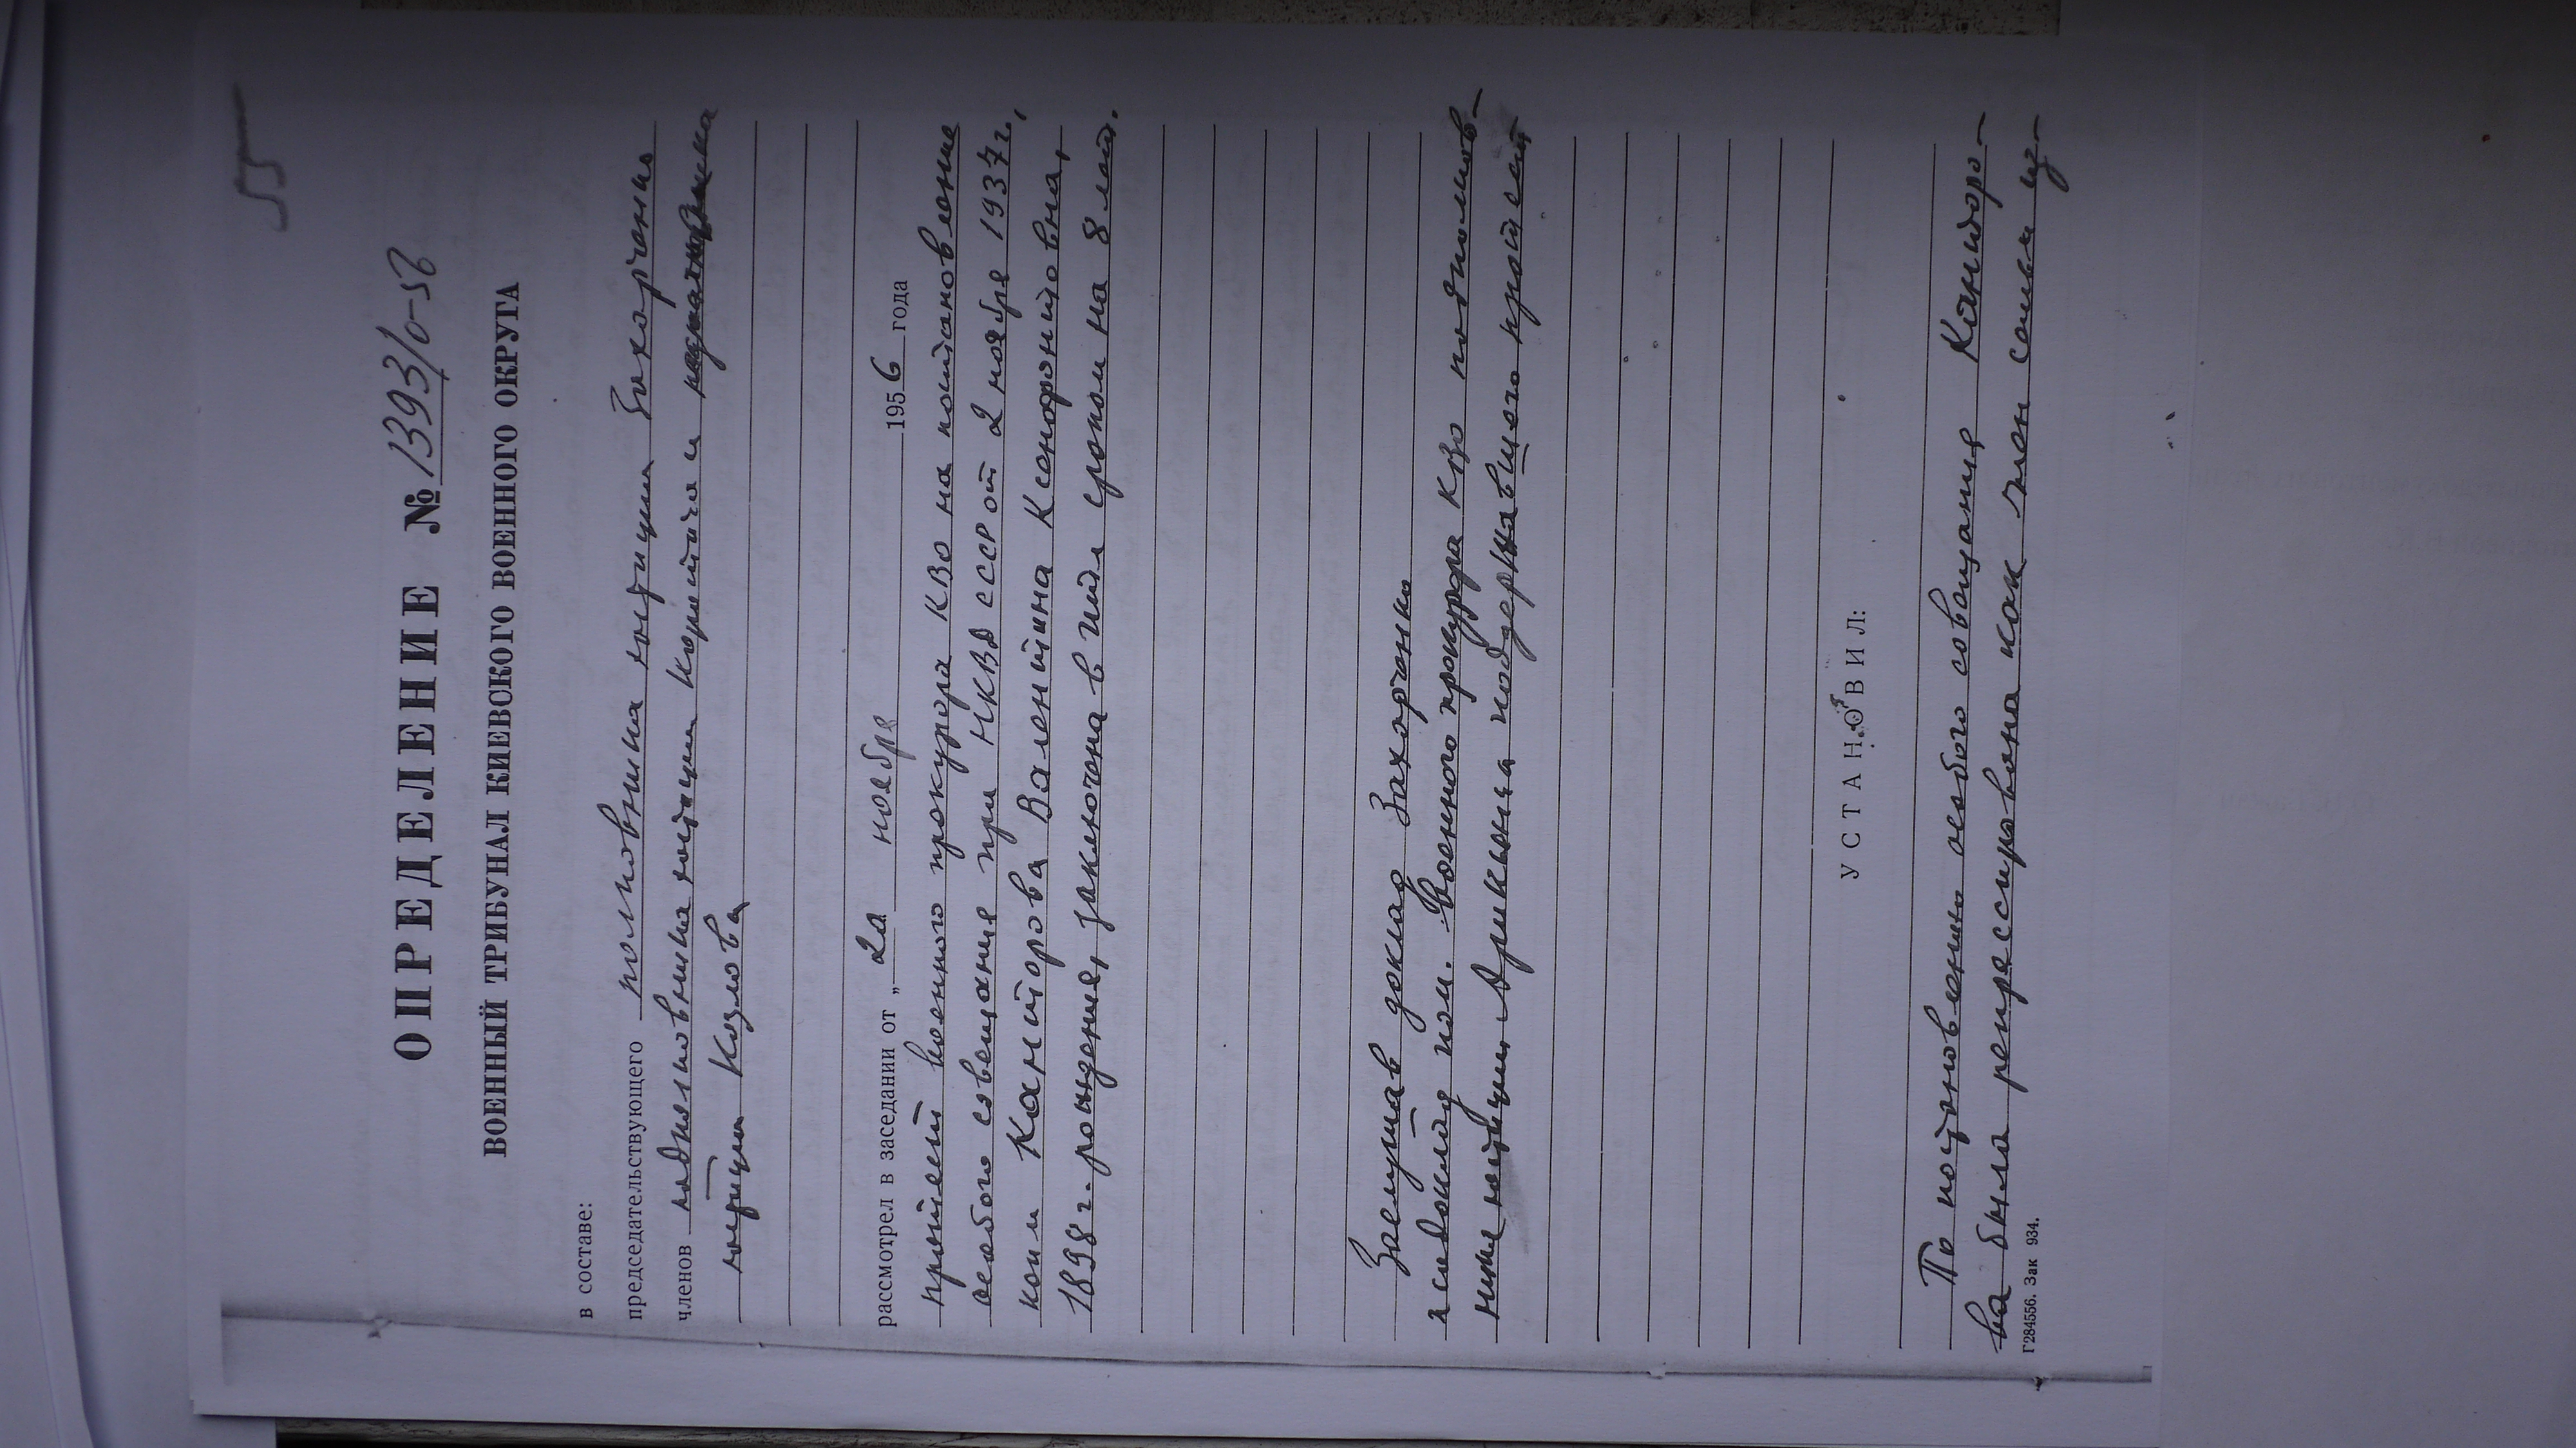 55
ОПРЕДЕЛЕНИЕ № 1393/0-56
ВОЕННЫЙ ТРИБУНАЛ КИЕВСКОГО ВОЕННОГО ОКРУГА
в составе:
председательствующего полковника юстиции Захарченко
членов подполковника юстиции и
юстиции Козлова
рассмотрел в заседании от „2а ноября 1956 года
протест военного прокурора КВО на постановление
особого совещания при НКВД СССР от 2 ноября 1937 г.,
коим Канторова Валентина Ксенофонтовна,
1898 г. рождения, заключена в ИТЛ сроком на 8 лет.
Заслушав доклад Захарченко
и содоклад пом. Военного прокурора КВО подполков-
ника юстиции поддержавшего протест
УСТАНОВИЛ:
По постановлению особого совещания Канторо-
ва была репрессирована как член семьи из-
Г284556. Зак 934.